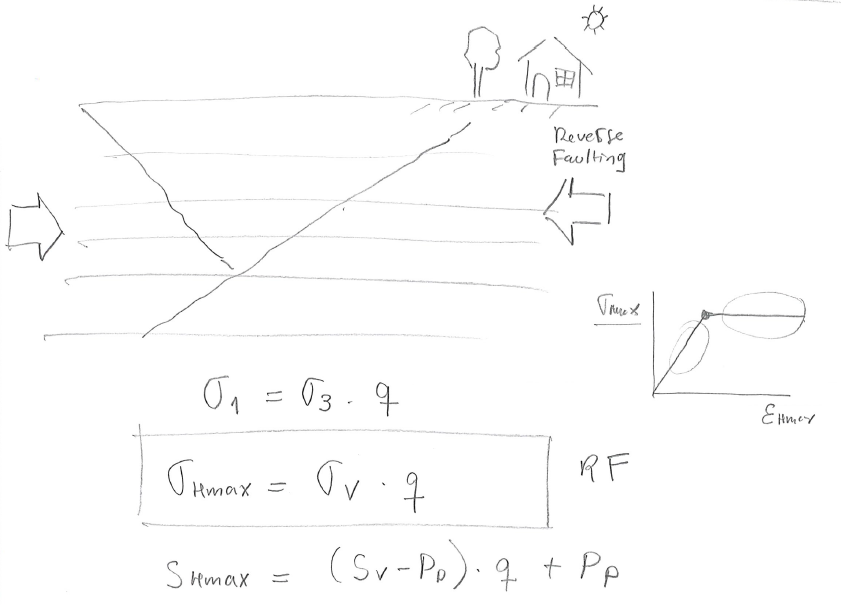 Reverse
Faulting
σHmax
εHmax
σ1 = σ3 · q
σHmax = σv · q
RF
SHmax = (Sv - Pp) · q + Pp